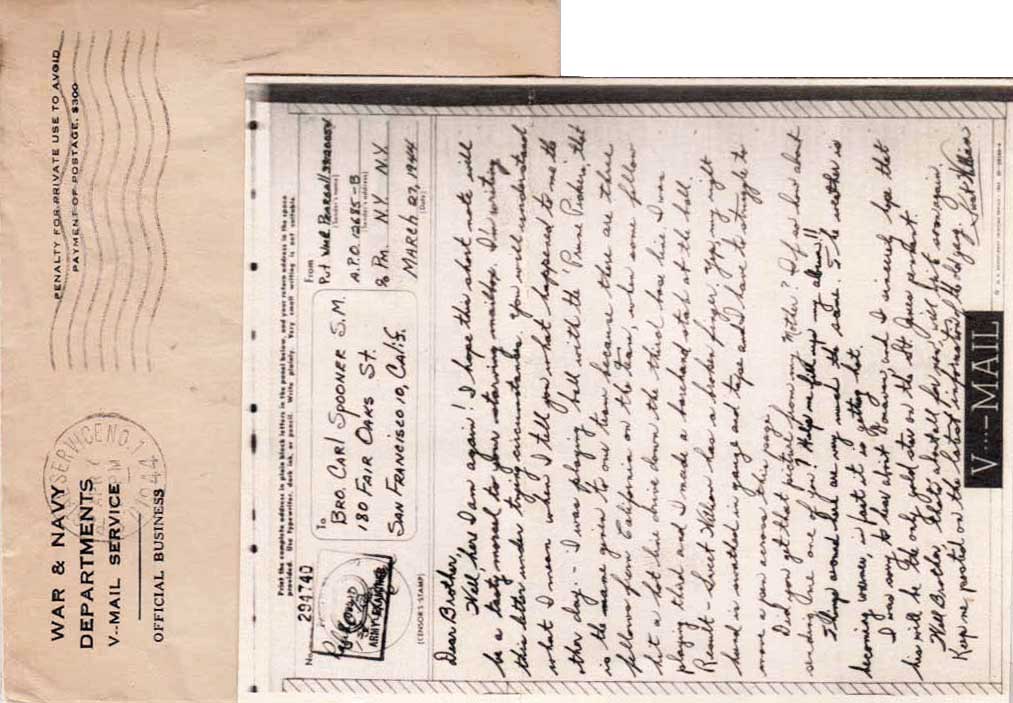 PENALTY FOR PRIVATE USE TO AVOID
PAYMENT OF POSTAGE, $300
WAR & NAVY
DEPARTMENTS
V---MAIL SERVICE
OFFICIAL BUSINESS
SERVICE NO. 1
1944
Print the complete address in plain block letters in the panel below, and your return address in the space
provided. Use typewriter, dark ink, or pencil. Write plainly. Very small writing is not suitable.
No. 294740
ARMY EXAMINER
(CENSOR'S STAMP)
To
BRO. CARL SPOONER S.M.
180 FAIR OAKS ST.
SAN FRANCISCO 10, CALIF.
From
(Sender's name)
A.P.O. 12685-B
(Sender's address)
% P.M. N.Y. N.Y.
MARCH 27, 1944
(Date)
Dear Brother,
Well, here I am again! I hope this short note will
be a tasty morsel to your starving mailbox. I'm writing
this letter under trying circumstances. You will understand
what I mean when I tell you what happened to me the
other day. - I was playing ball with the "Prune Pickers", that
is the name given to one team because there are three
fellows from California on the team, when some fellow
hit a hot line drive down the third base line. I was
playing third and I made a barehand stab at the ball.
Result - Sweet William has a broken finger. Yep, my right
hand is swathed in gauze and tape and I have to struggle to
move a pen across this page.
Did you get that picture from my Mother? If so how about
sending me one of you? Help me fill up my album!!
Things around here are very much the same. The weather is
becoming warmer, in fact it is getting hot.
I was sorry to hear about Romano, and I sincerely hope that
his will be the only gold star on the St. James pennant.
Well Brother, that's about all for now, will write soon again.
Keep me posted on the latest information,
V---MAIL